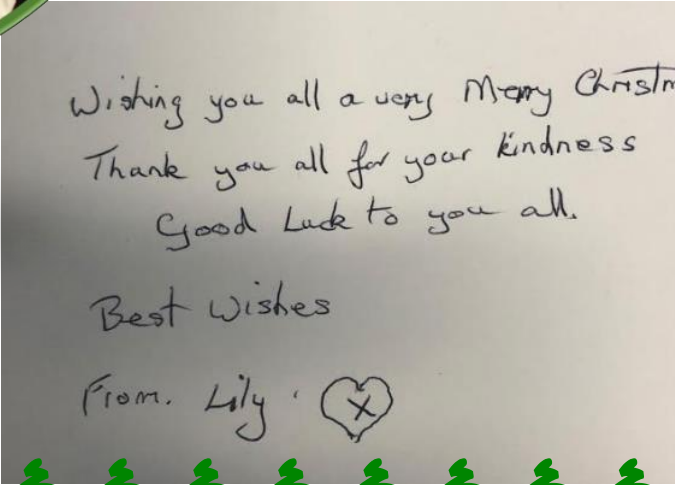 Wishing you all a very Merry Christm
Thank you all for your kindness
Good Luck to you all.
Best Wishes
From. Lily. X